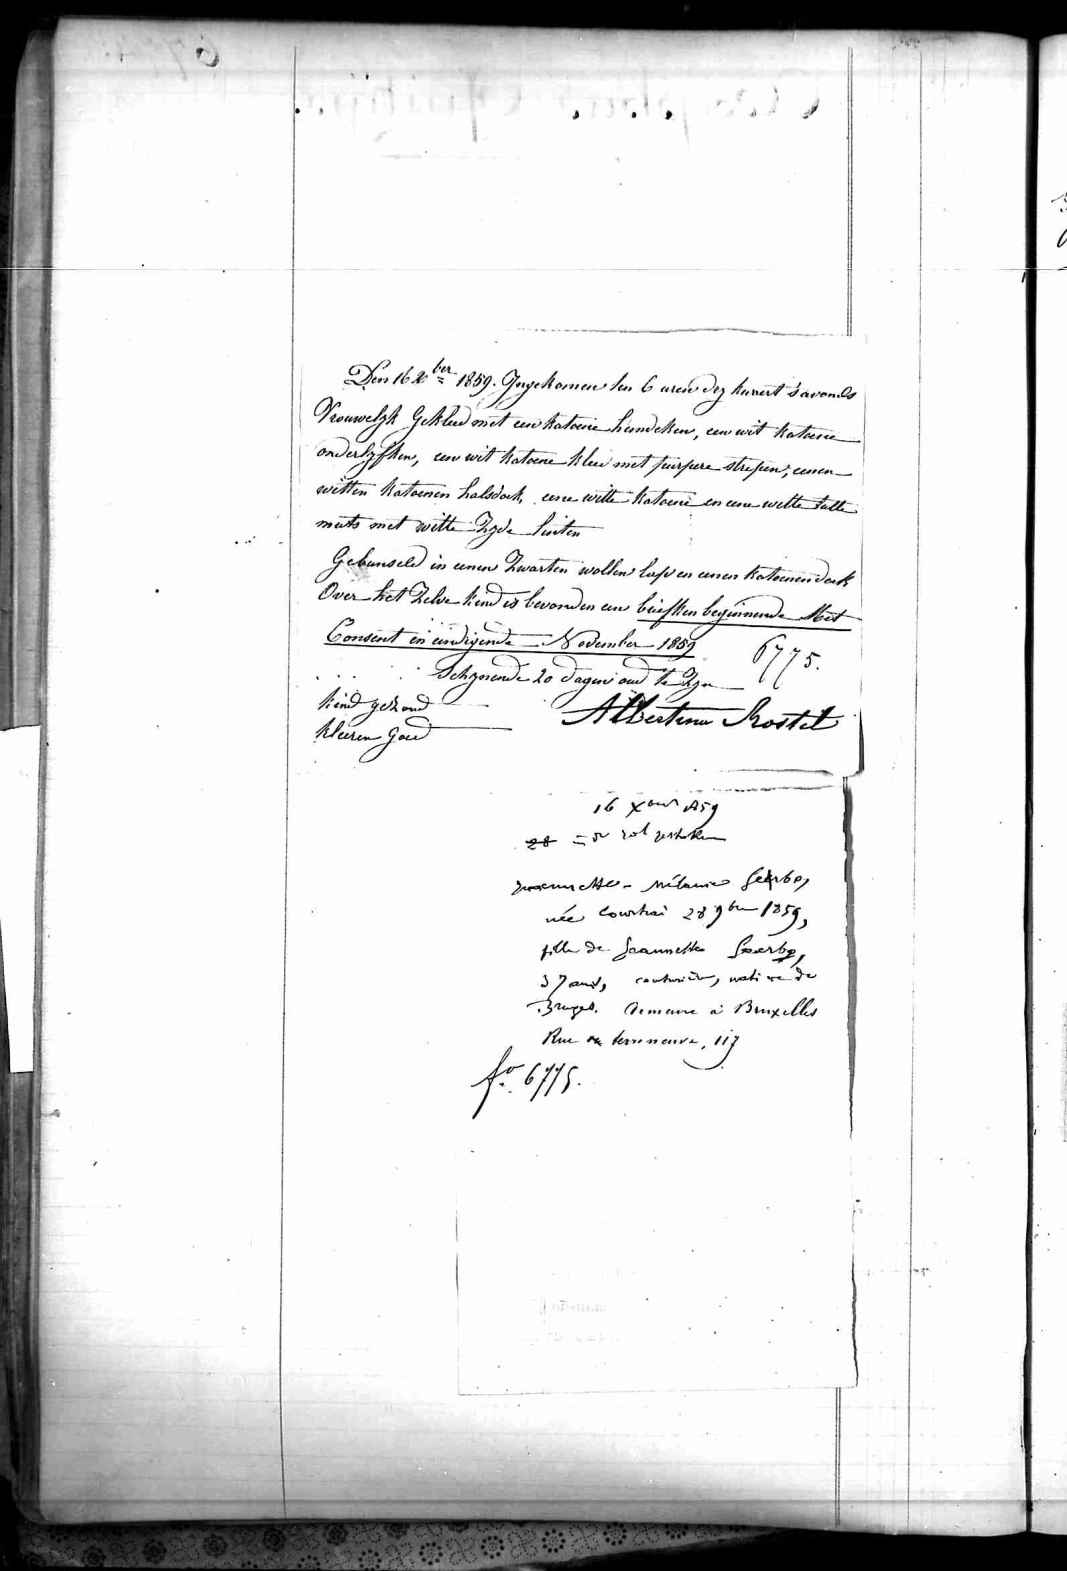 Den 16 Xber 1859. Ingekomen ten 6 uren dez kwaert s'avonds
Vrouwelyk Gekleed met een katoene hemdeken, een wit katoene
onderlyfken, een wit katoene kleed met purpere strepen, eenen
witten katoenen halsdoek, eene witte katoene en eene witte tulle
muts met witte Zyde linten
Gebunseld in eenen Zwarten wollen lap en eenen katoenen doek
Over het Zelve kind is bevonden een briefken beginnende Met
Consent en eindigende November 1859
6775.
Schynende 20 dagen oud te Zyn
kind gezond
kleeren Goed
Albertina Rostel
16 Xbre 1859
28
Mélanie
née Courtrai 28 9bre 1859,
fille de Jeannette
37 ans, couturière, native de
Bruges. demeure à Bruxelles
Rue terre neuve, 117
fo. 6775.